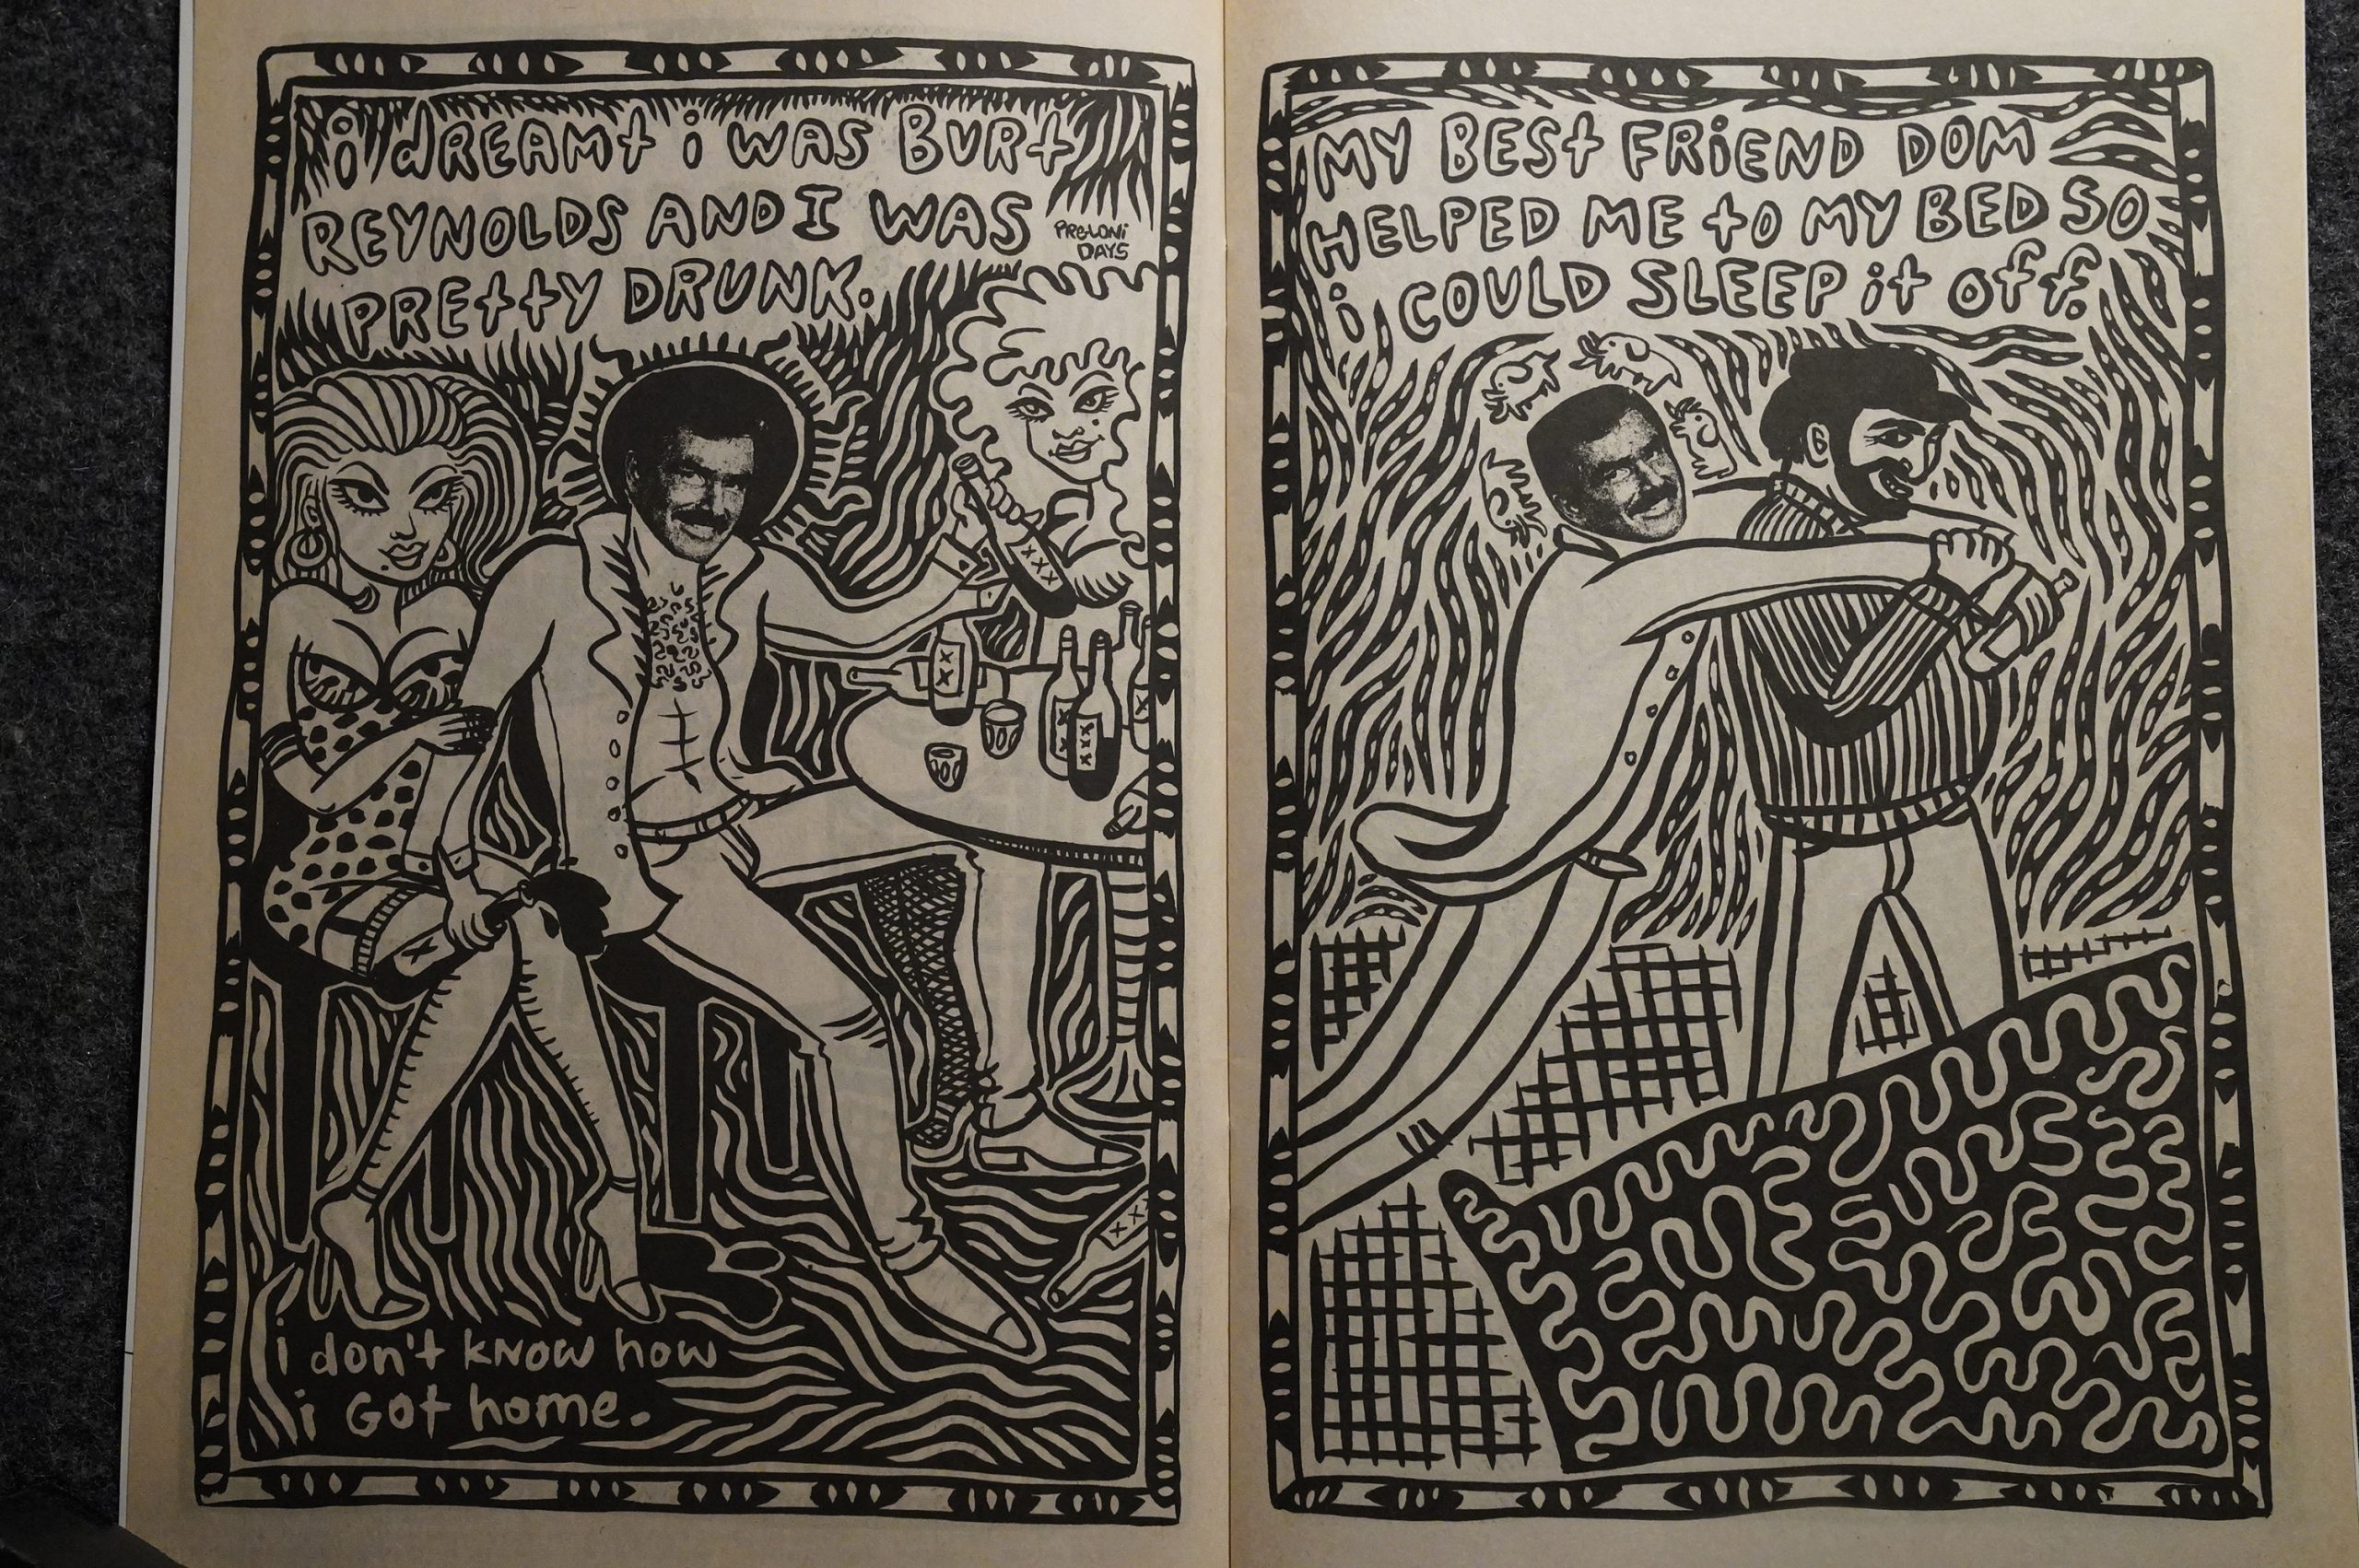 i dREAMt i WAS BURt
REYNOLDS AND I WAS
PRE-LONi
DAYS
PREttY DRUNK.
XXX
XX
XX
XXX
X
XXX
i don't KNOW how
i Got home.
MY BESt FRiEND DOM
HELPED ME to MY BED SO
i COULD SLEEP it off.